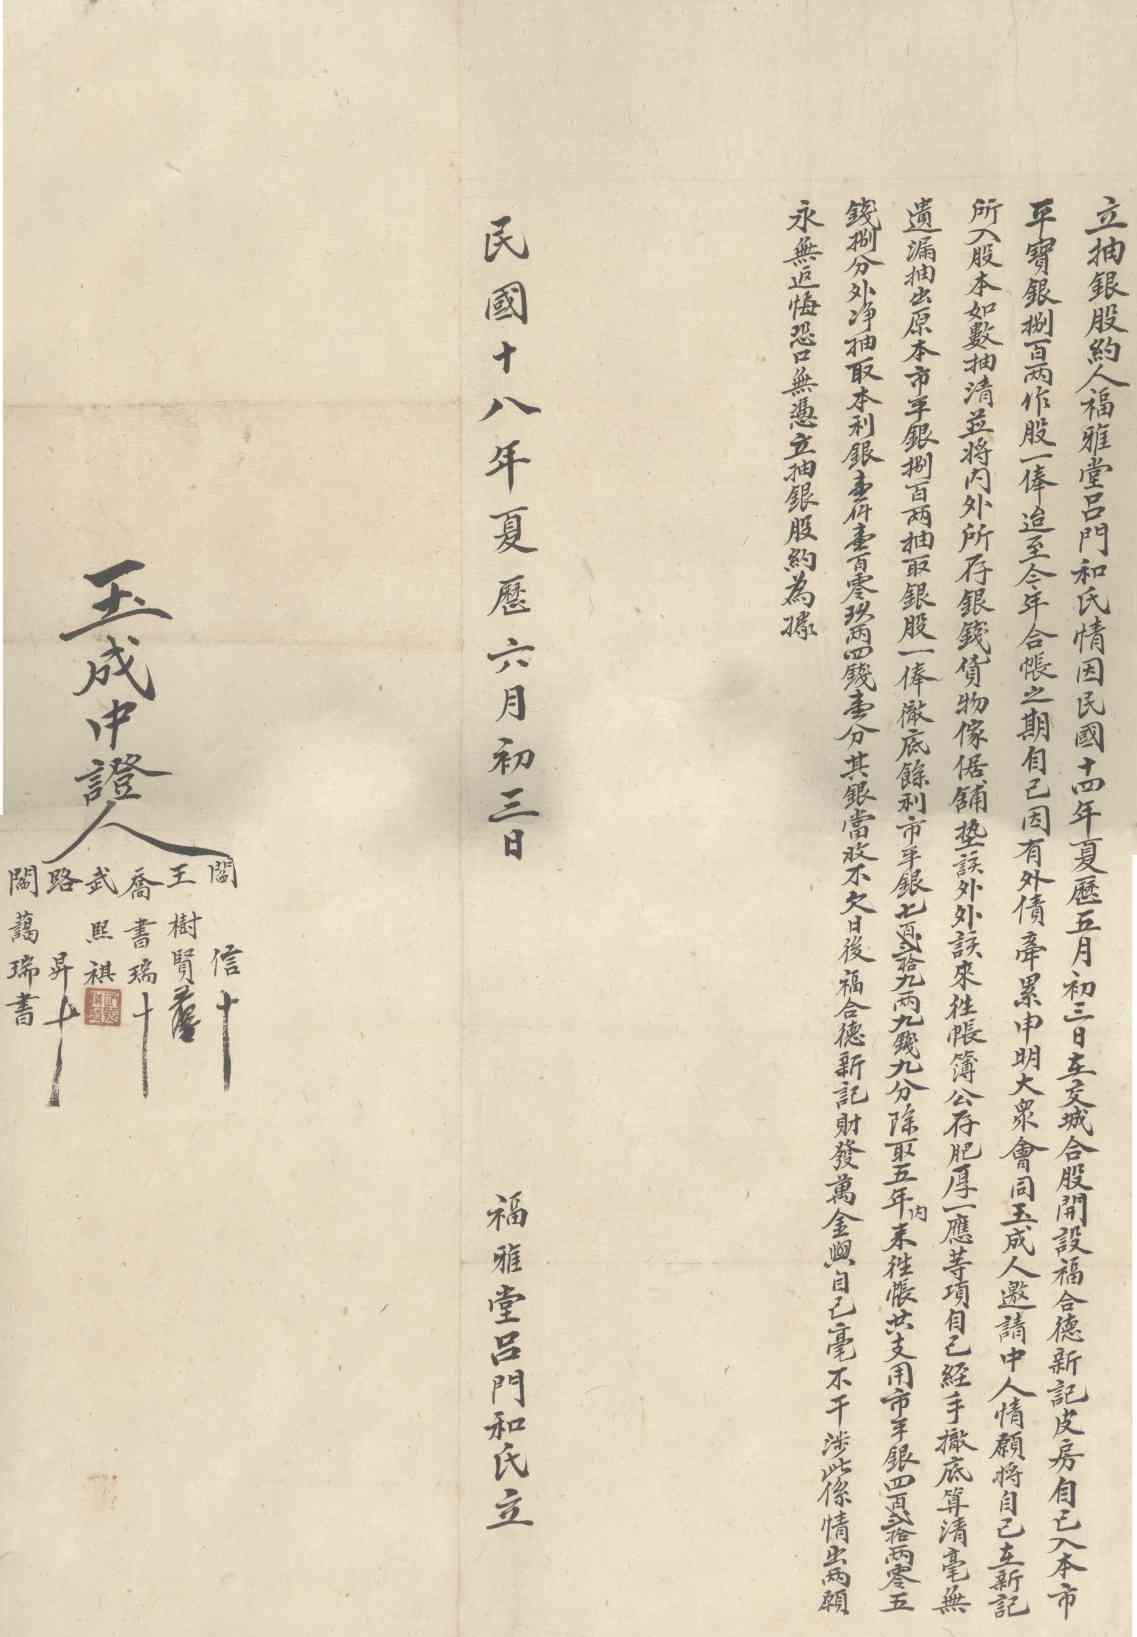 立抽銀股約人福雅堂呂門和氏情因民國十四年夏歷五月初三日在交城合股開設福合德新記皮房自己入本市
平寶銀捌百兩作股一俸迨至今年合帳之期自己因有外債牽累申明大衆會同玉成人邀請中人情願將自己在新記
所入股本如數抽清並將內外所存銀錢貨物傢俱舖墊該外外該來往帳簿公存肥厚一應等項自己經手撤底算清毫無
遺漏抽出原本市平銀捌百兩抽取銀股一俸徹底餘利市平銀七百貳拾九兩九錢九分除取五年內來往帳共支用市平銀四百貳拾兩零五
錢捌分外净抽取本利銀壹仟壹百零玖兩四錢壹分其銀當收不欠日後福合德新記財發萬金與自己毫不干涉此係情出兩願
永無返悔恐口無憑立抽銀股約為據
民國十八年夏歷六月初三日
福雅堂呂門和氏立
玉成中證人
閻信十
王樹賢
喬書瑞十
武熙祺
路昇十
閻藹瑞書